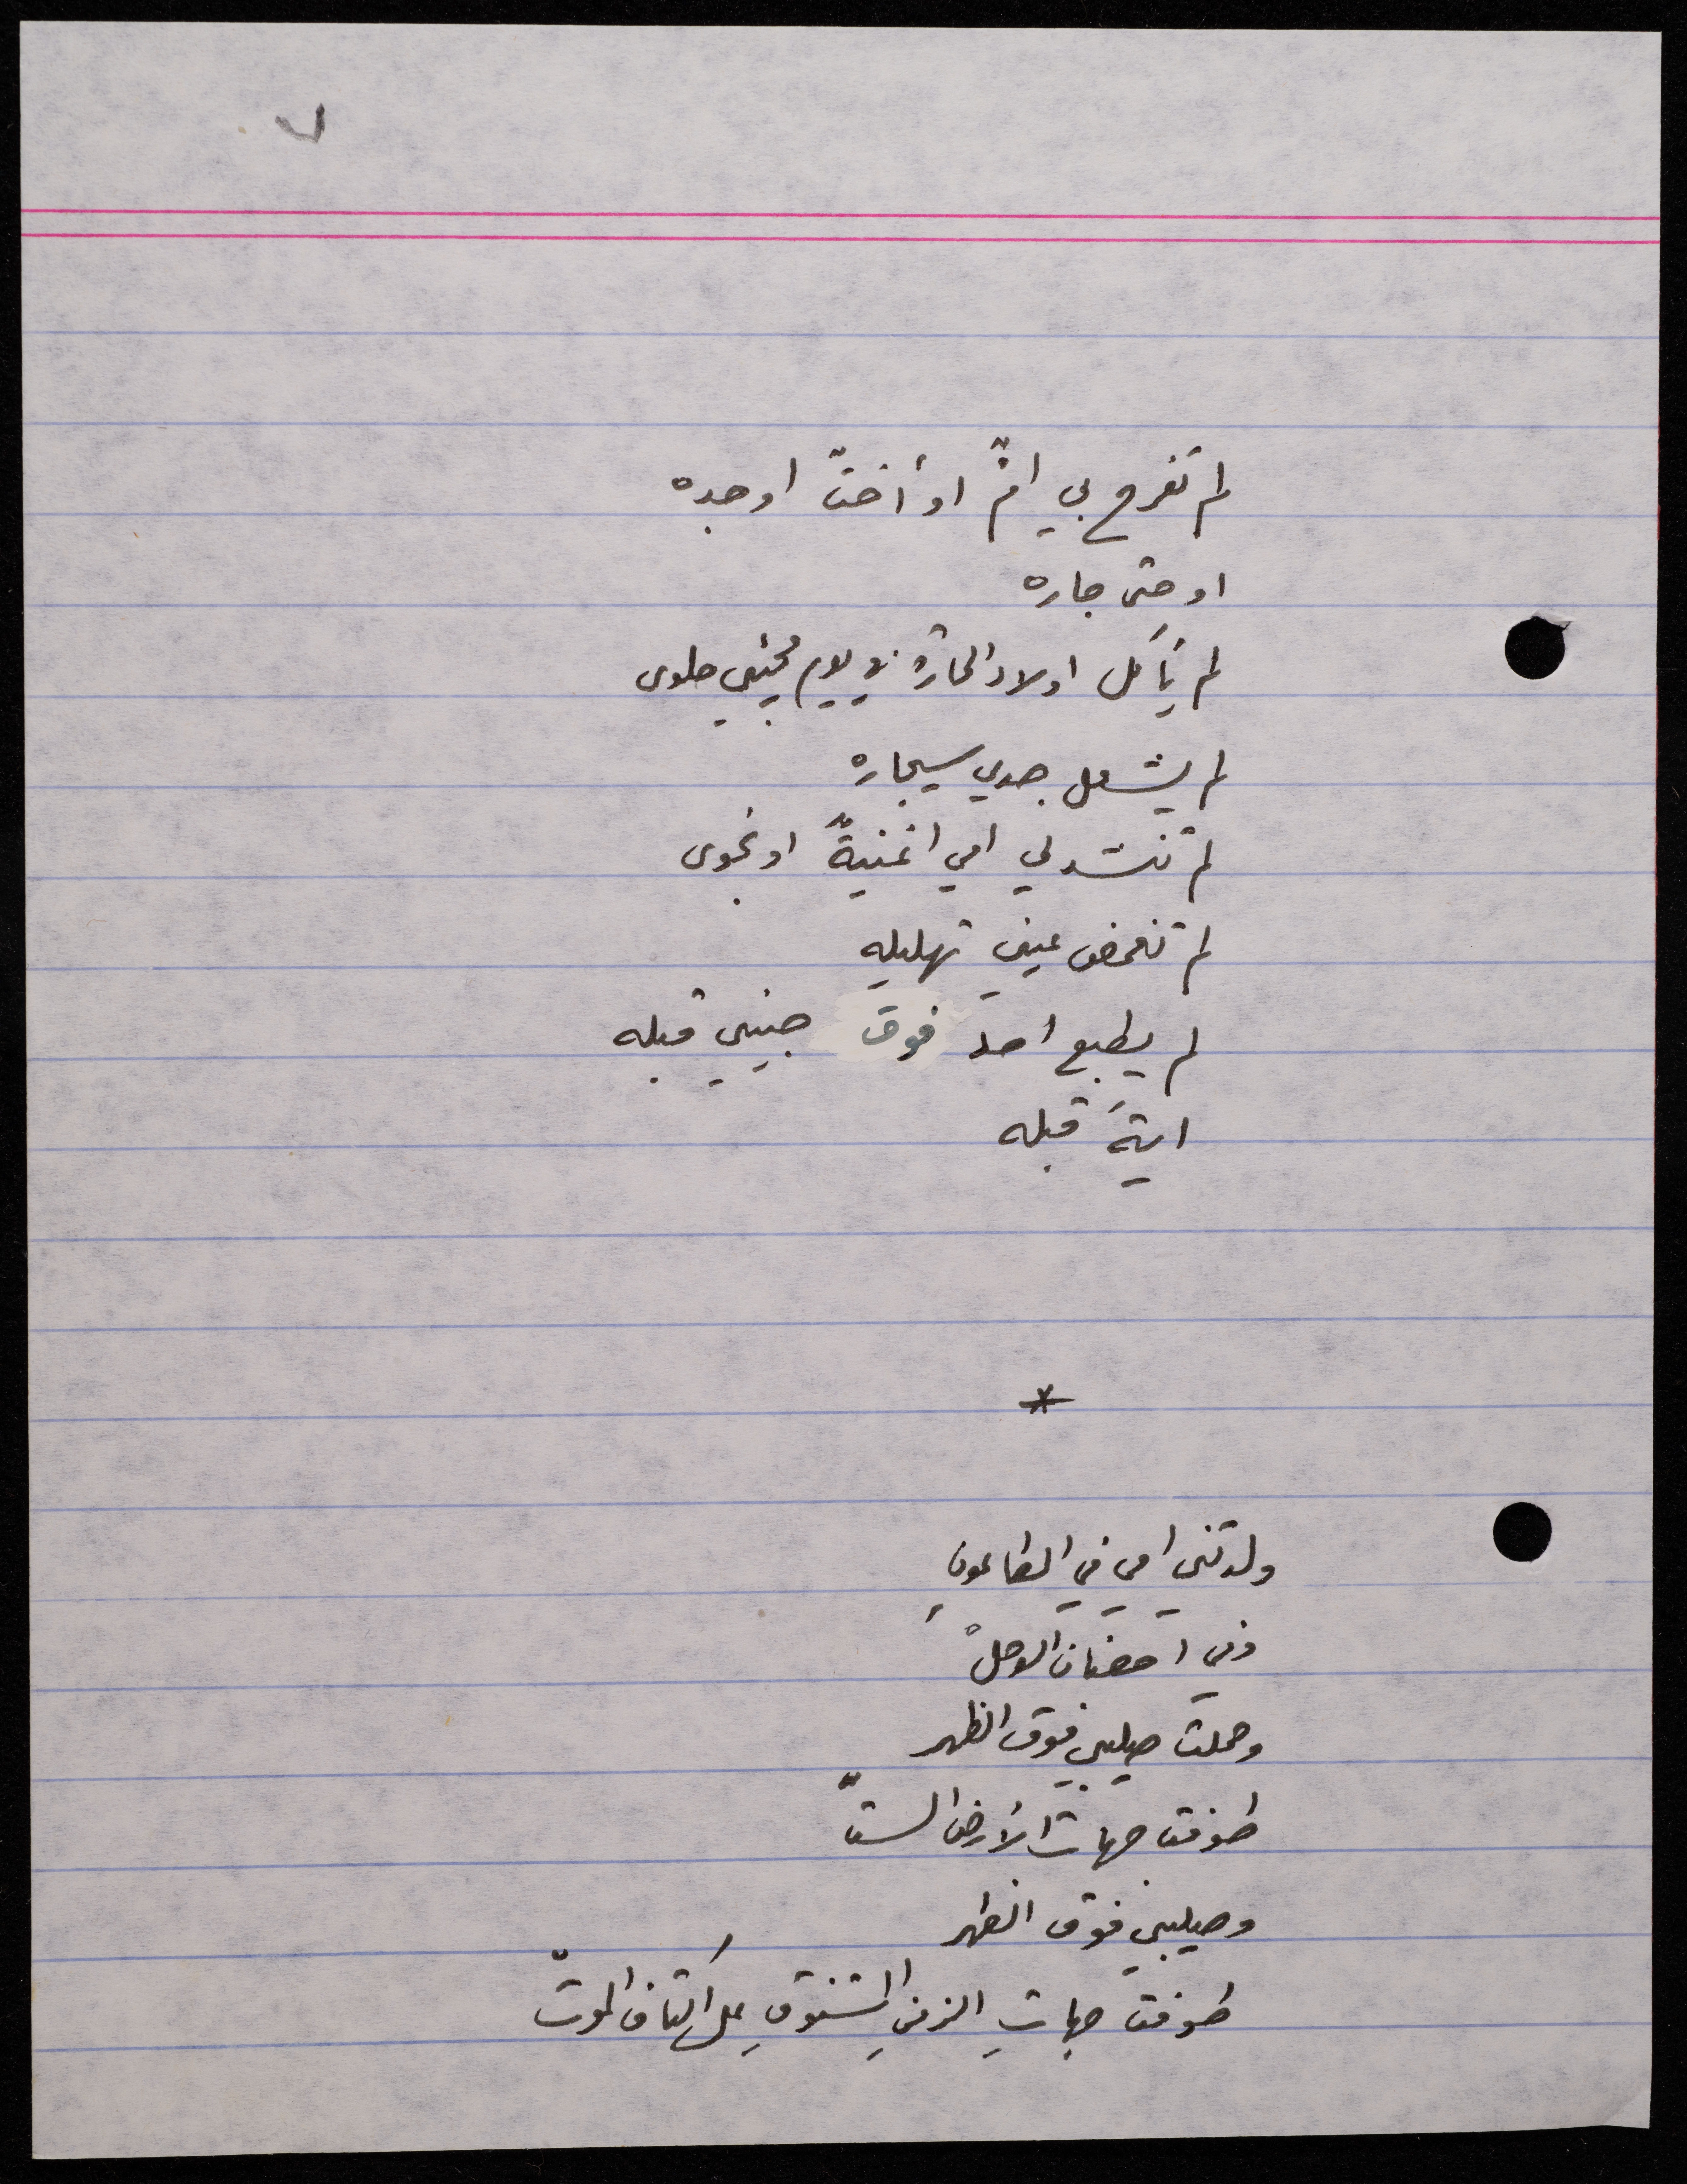 ل
لم تفرح بي امٌّ او أختٌ او جده
او حتى جاره
لم يأكل اولاد الحارة في يوم مجيئي حلوى
لم يشعل جدي سيجاره
لم تنشد لي امي اغنيةً او نجوى
لم تغمض عيني تهليله
لم يطبع احد فوق جبيني قبله
ايةَ قبله
*
ولدتني امي في الطاعونِ
وفي احضان الوحلْ
وحملت صليبي فوق الظهر
طوفت جهات الأرض الستّ
وصليبي فوق الظهر
طوفت جهاتِ الزمنِ المشنوقِ على أكتاف الموتْ